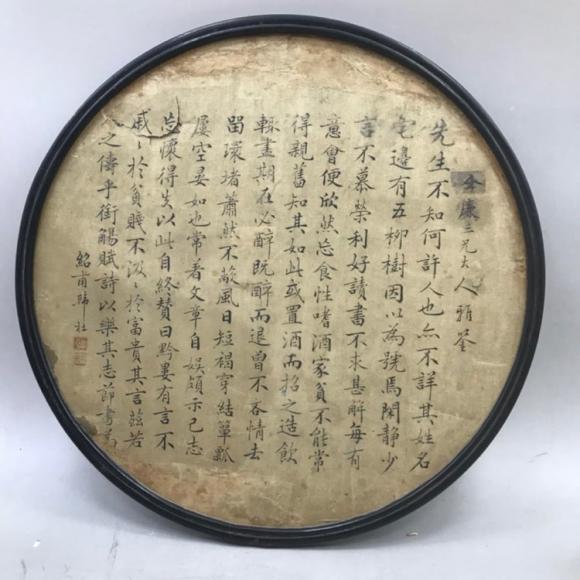 全康三兄大人雅鉴
先生不知何許人也亦不詳其姓名
宅邊有五柳樹因以為號焉閑静少
言不慕榮利好讀書不求甚解每有
意會便欣然忘食性嗜酒家貧不能常
得親舊知其如此或置酒而招之造飲
輒盡期在必醉既醉而退曾不吝情去
留環堵蕭然不蔽風日短褐穿結簞瓢
屢空晏如也常著文章自娱頗示己志
忘懷得失以此自終贊曰黔婁有言不
戚〻於貧賤不汲〻於富貴其言茲若
人之儔乎銜觴賦詩以樂其志節書為
紹甫歸